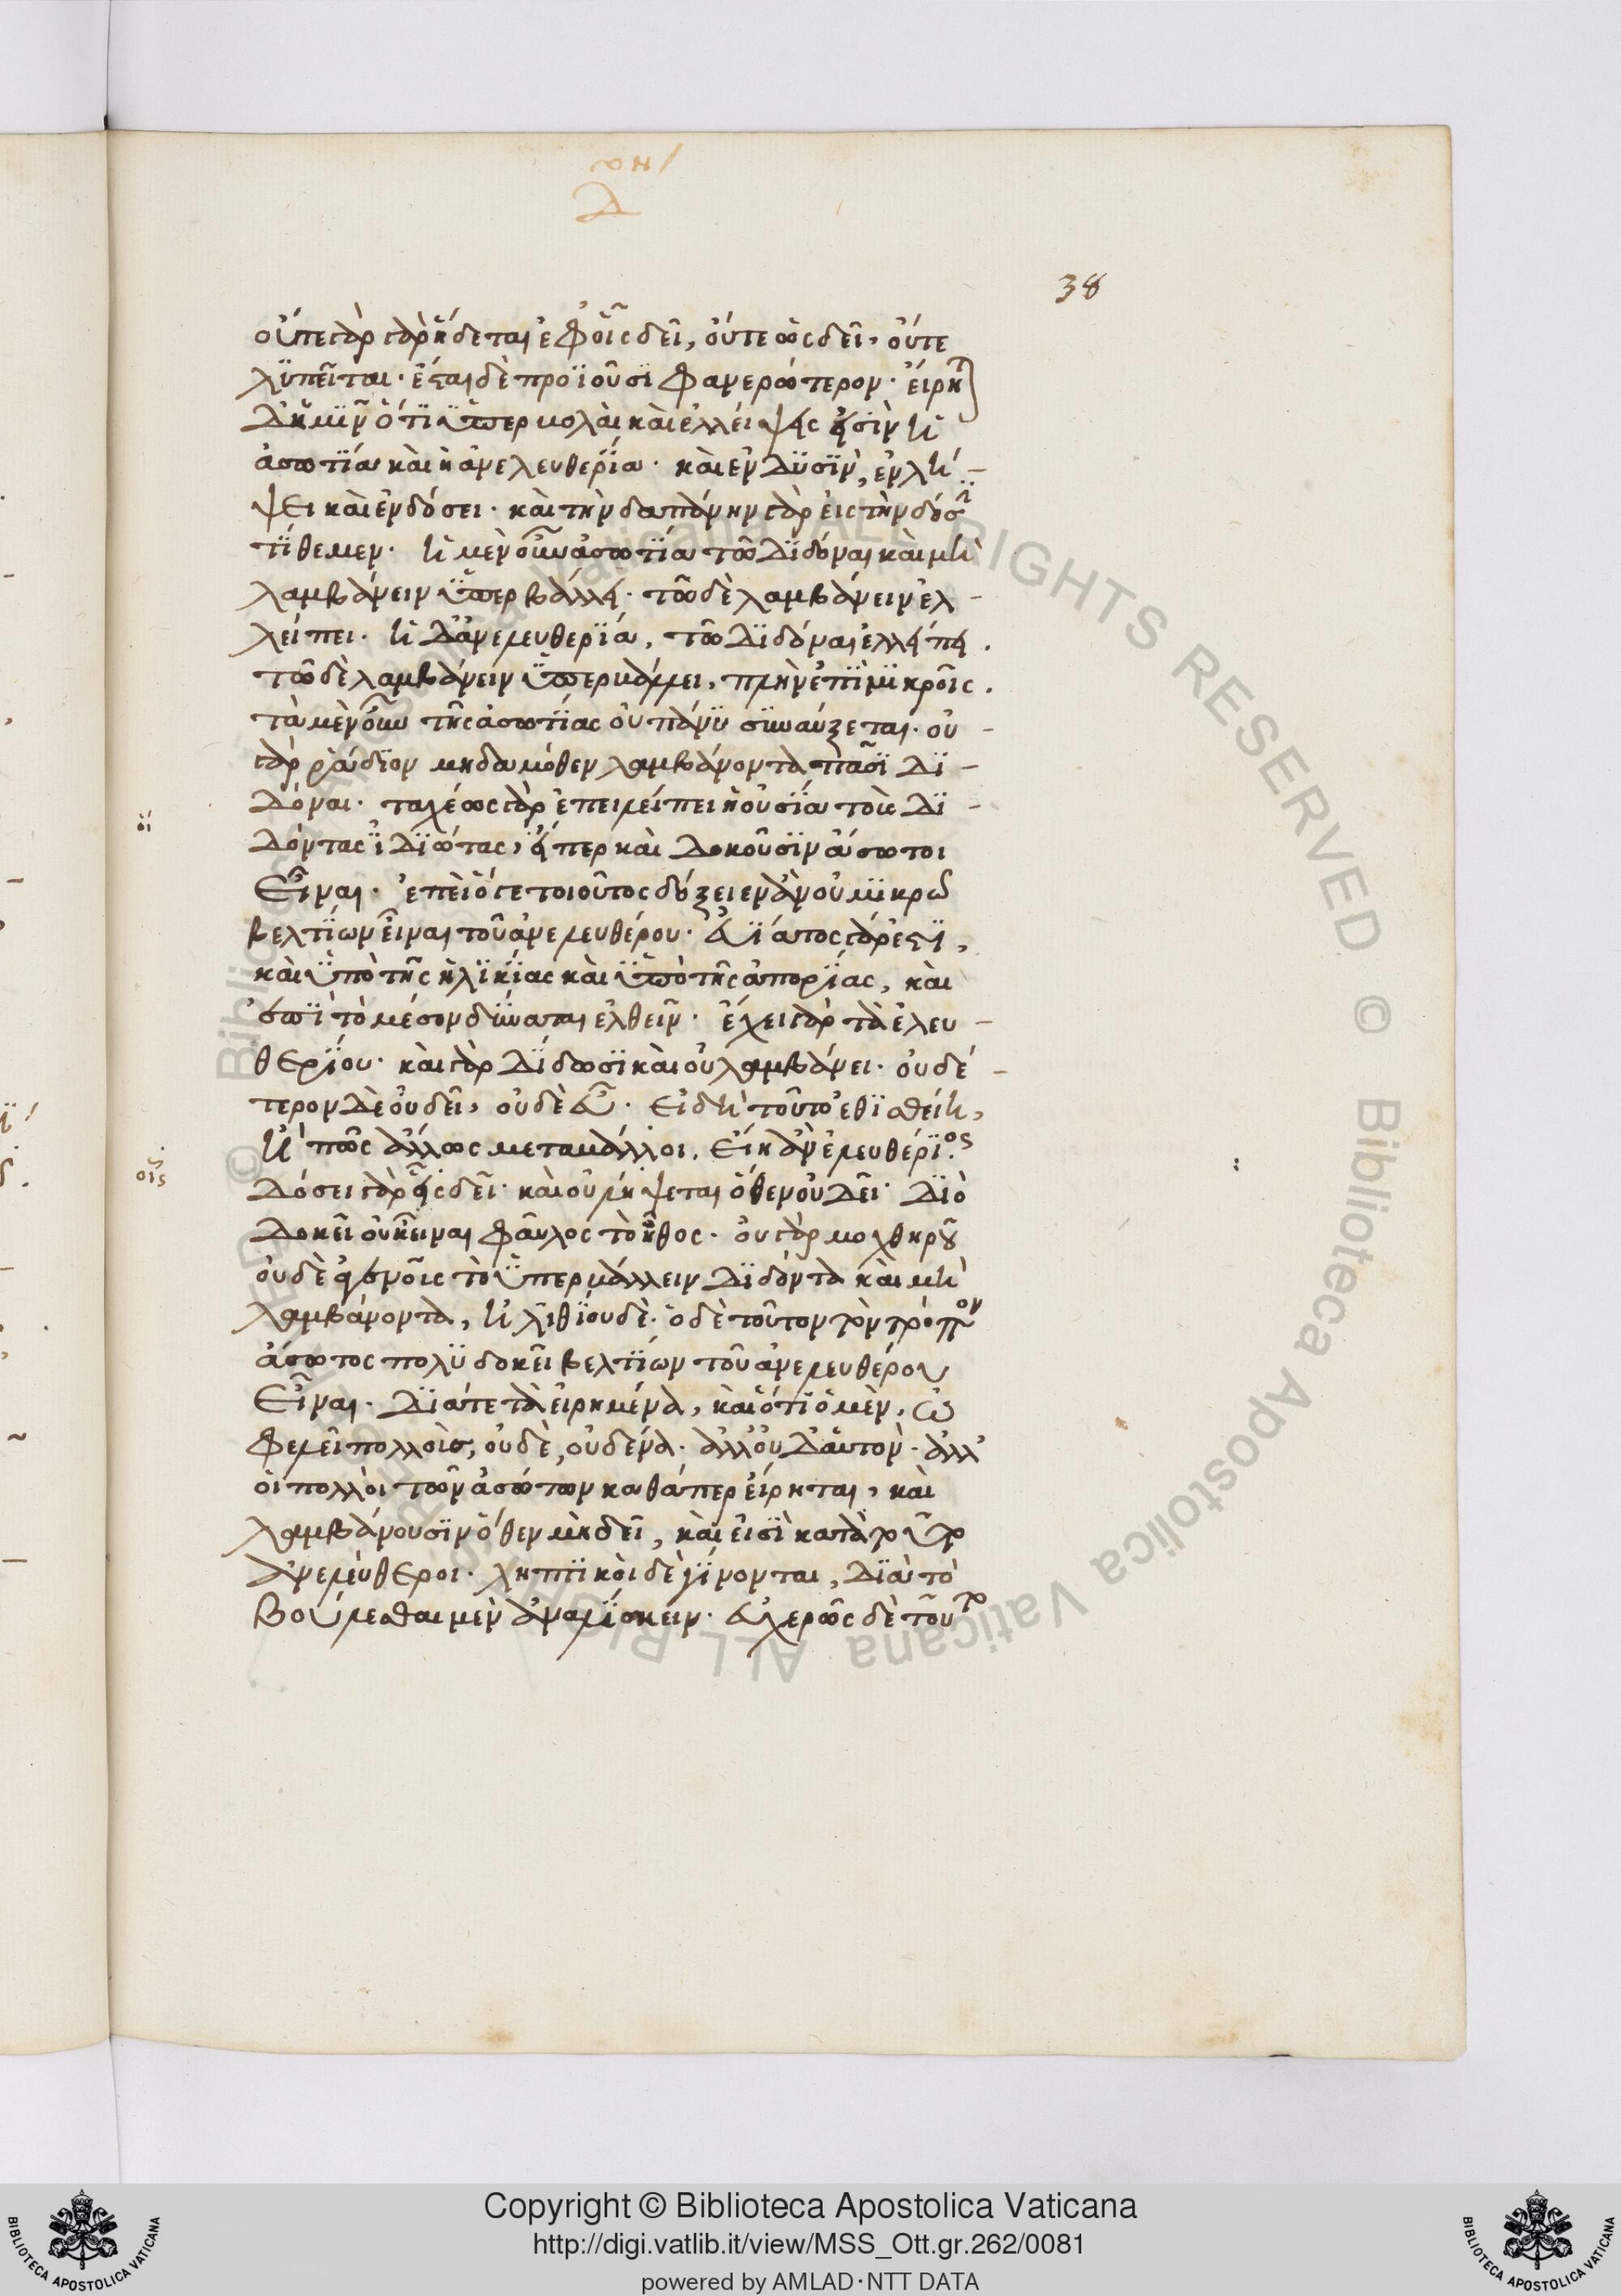 χη/
Δ
38
οὔτε γὰρ γὰρ ἥδεται ἐφ' οἷς δεῖ, οὔτε ὡς δεῖ· οὔτε
λυπεῖται· ἔσται δὲ προϊοῦσι φανερώτερον· εἴρητ
δ' ἡμῖν ὅτι ὑπερβολαὶ καὶ ἐλλείψεις εἰσὶν ἡ
ἀσωτία καὶ ἡ ἀνελευθερία· καὶ ἐν δυσὶν, ἐν λή-
ψει καὶ ἐν δόσει· καὶ τὴν δαπάνην γὰρ εἰς τὴν δόσιν
τίθεμεν· ἡ μὲν οὖν ἀσωτία τῶ διδόναι καὶ μὴ
λαμβάνειν ὑπερβάλλει· τῶ δὲ λαμβάνειν ἐλ-
λείπει· ἡ δ' ἀνελευθερία, τῶ διδόναι ἐλλείπει.
τῶ δὲ λαμβάνειν ὑπερβάλλει, πλὴν ἐπὶ μικροῖς.
τὰ μὲν οὖν τῆς ἀσωτίας οὐ πάνυ συναύξεται· οὐ-
γὰρ ῥάδιον μηδαμόθεν λαμβάνοντα πᾶσι δι-
δόναι· ταχέως γὰρ ἐπιλείπει ἡ οὐσία τοὺς δι-
οἵ
δόντας ἰδιώτας, εἵπερ καὶ δοκοῦσιν ἄσωτοι
εἶναι· ἐπεὶ ὅγε τοιοῦτος δόξειεν ἂν οὐ μικρῶ
βελτίων εἶναι τοῦ ἀνελευθέρου· εὐίατος γάρ ἐστι,
καὶ ὑπὸ τῆς ἡλικίας καὶ ὑπὸ τῆς ἀπορίας, καὶ
ἐπὶ τὸ μέσον δύναται ἐλθεῖν· ἔχει γὰρ τὰ ἐλευ-
θερίου· καὶ γὰρ δίδωσι καὶ οὐ λαμβάνει· οὐδέ-
τερον δὲ οὐ δεῖ, οὐδὲ εὖ· εἰ δὴ τοῦτο ἐθισθείη,
ἤ πως ἄλλως μεταβάλλοι, εἴη ἂν ἐλευθέριος.
οἷς
δόσει γὰρ εἷς δεῖ· καὶ οὐ λήψεται ὅθεν οὐ δεῖ· διὸ
δοκεῖ οὐκ εἶναι φαῦλος τὸ ἦθος· οὐ γὰρ μοχθηροῦ
οὐδὲ ἀγενοῦς τὸ ὑπερβάλλειν διδόντα καὶ μὴ
λαμβάνοντα, ἠλιθίου δὲ· ὁ δὲ τοῦτον τὸν τρόπον
ἄσωτος πολὺ δοκεῖ βελτίων τοῦ ἀνελευθέρου
εἶναι· διά τε τὰ εἰρημένα, καὶ ὅτι ὁ μὲν, ὠ
φελεῖ πολλούς, ὁ δὲ, οὐδένα· ἀλλ' οὐδ' αὑτόν· ἀλλ'
οἱ πολλοὶ τῶν ἀσώτων καθάπερ εἴρηται, καὶ
λαμβάνουσιν ὅθεν μὴ δεῖ, καὶ εἰσὶ κατὰ τοῦτο
ἀνελεύθεροι· ληπτικοὶ δὲ γίνονται, διὰ τὸ
βούλεσθαι μὲν ἀναλίσκειν· εὐχερῶς δὲ τοῦτο
Copyright © Biblioteca Apostolica Vaticana
http://digi.vatlib.it/view/MSS_Ott.gr.262/0081
powered by AMLAD·NTT DATA